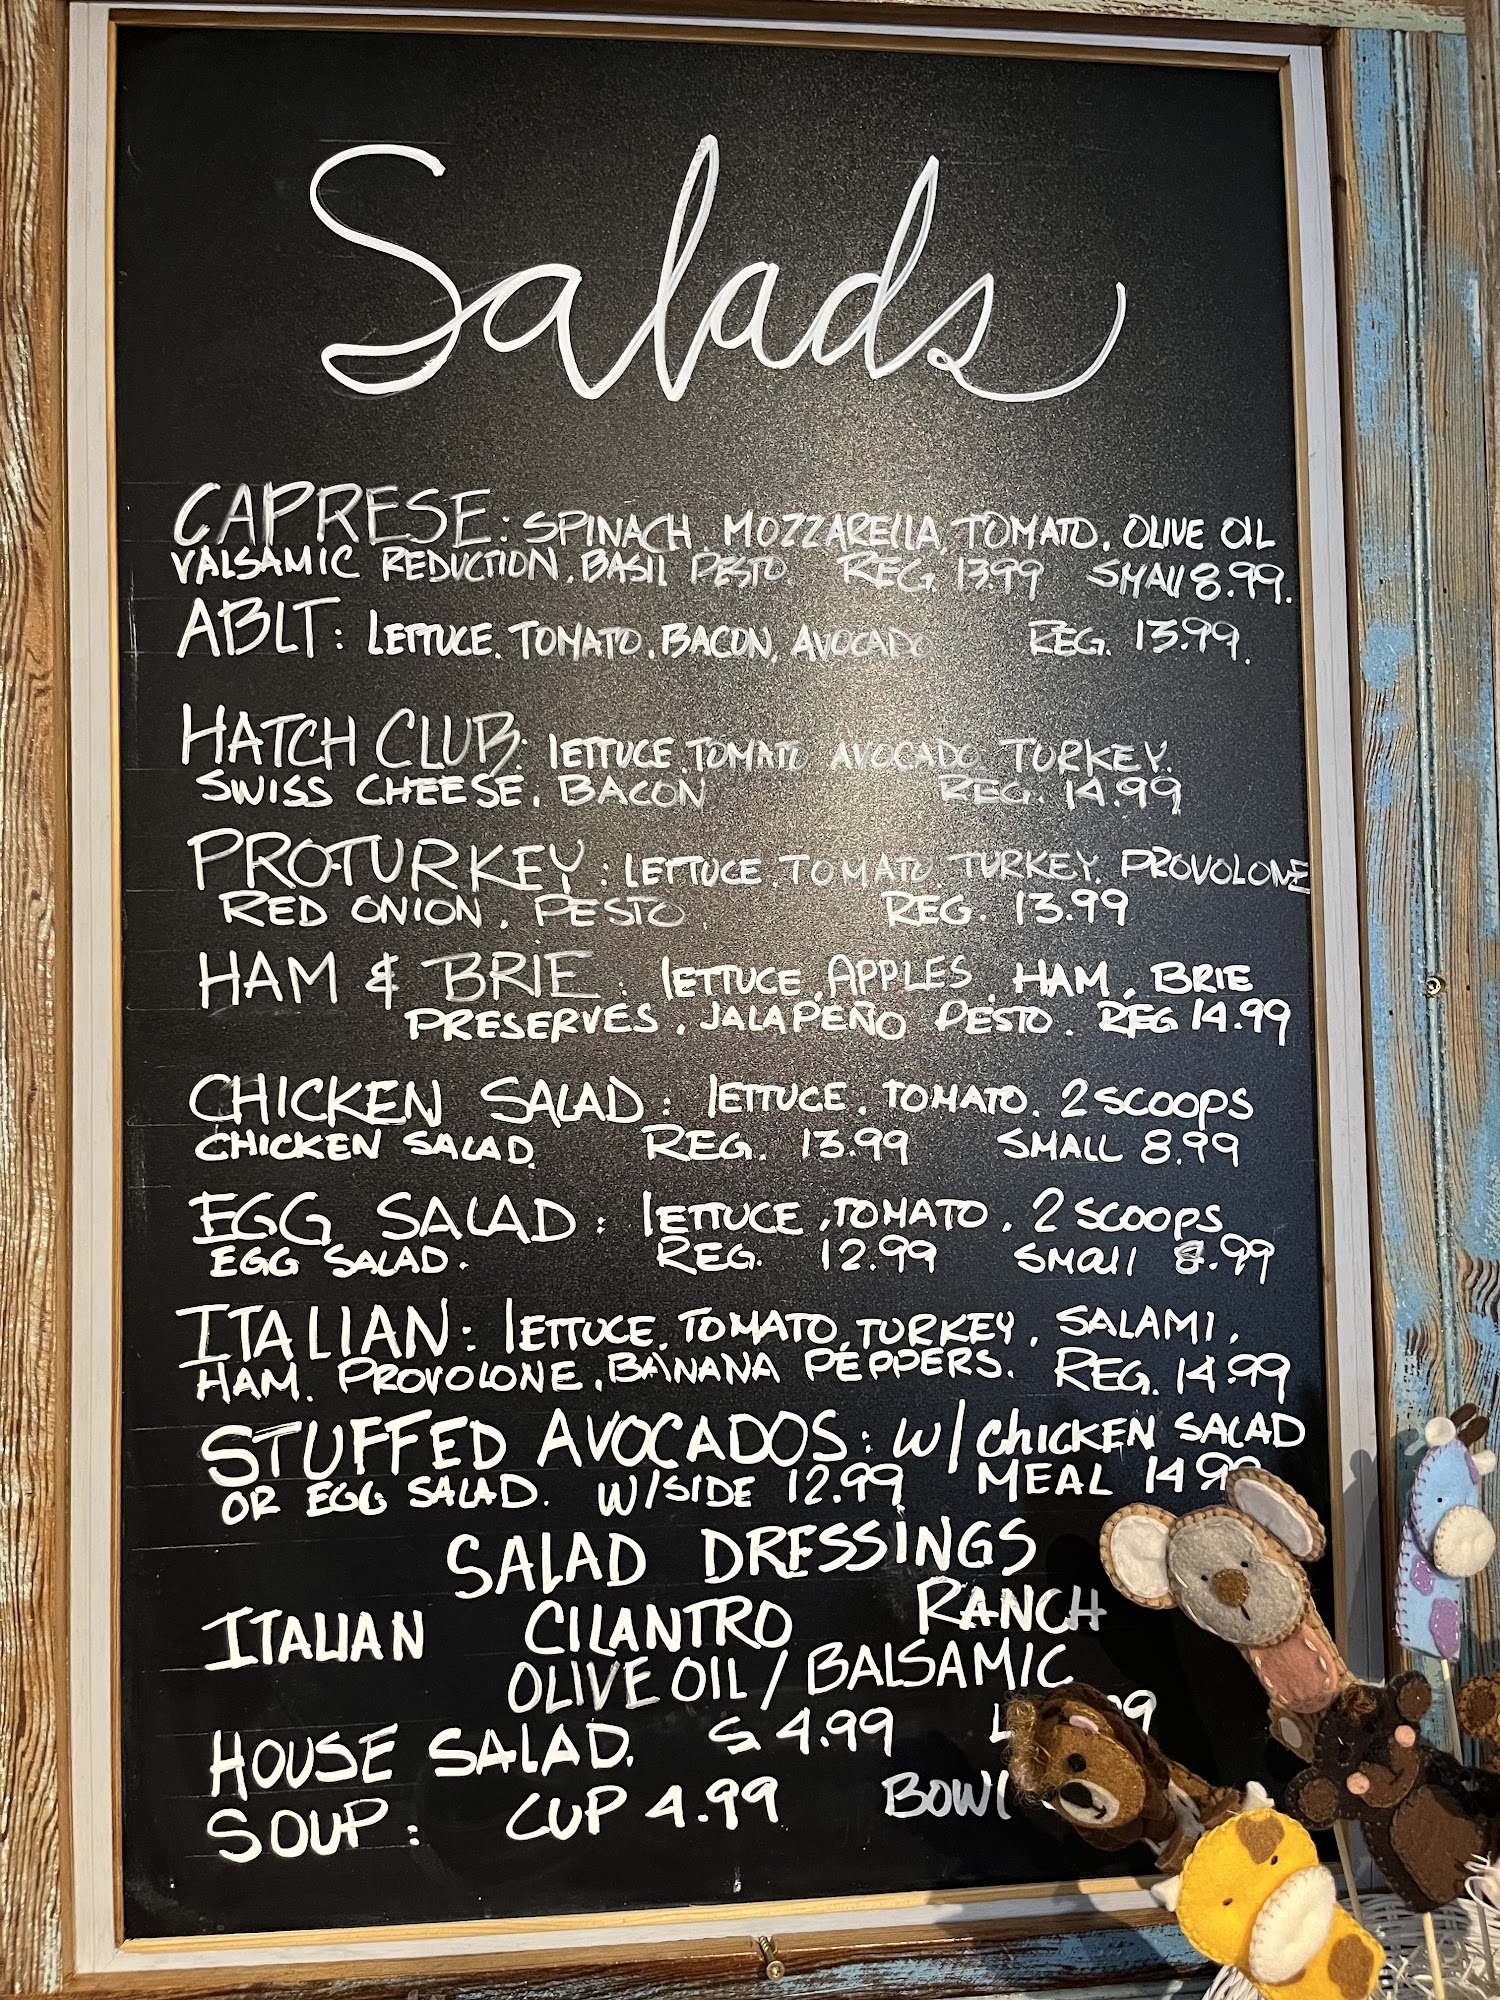 Salads
CAPRESE: SPINACH, MOZZARELLA, TOMATO, OLIVE OIL
VALSAMIC REDUCTION, BASIL PESTO. REG. 13.99 SMALL 8.99.
ABLT: LETTUCE, TOMATO, BACON, AVOCADO REG. 13.99.
HATCH CLUB: LETTUCE, TOMATO AVOCADO, TURKEY,
SWISS CHEESE, BACON REG. 14.99
PROTURKEY: LETTUCE, TOMATO, TURKEY, PROVOLONE
RED ONION, PESTO, REG. 13.99
HAM & BRIE: LETTUCE, APPLES, HAM, BRIE
PRESERVES, JALAPEÑO PESTO. REG 14.99
CHICKEN SALAD: LETTUCE, TOMATO, 2 SCOOPS
CHICKEN SALAD. REG. 13.99 SMALL 8.99
EGG SALAD: LETTUCE, TOMATO, 2 SCOOPS
EGG SALAD. REG. 12.99 SMALL 8.99
ITALIAN: LETTUCE, TOMATO, TURKEY, SALAMI,
HAM, PROVOLONE, BANANA PEPPERS. REG. 14.99
STUFFED AVOCADOS: W/ CHICKEN SALAD
OR EGG SALAD. W/SIDE 12.99 MEAL 14.99
SALAD DRESSINGS
ITALIAN CILANTRO RANCH
OLIVE OIL / BALSAMIC
HOUSE SALAD. S 4.99 L
SOUP: CUP 4.99 BOWL